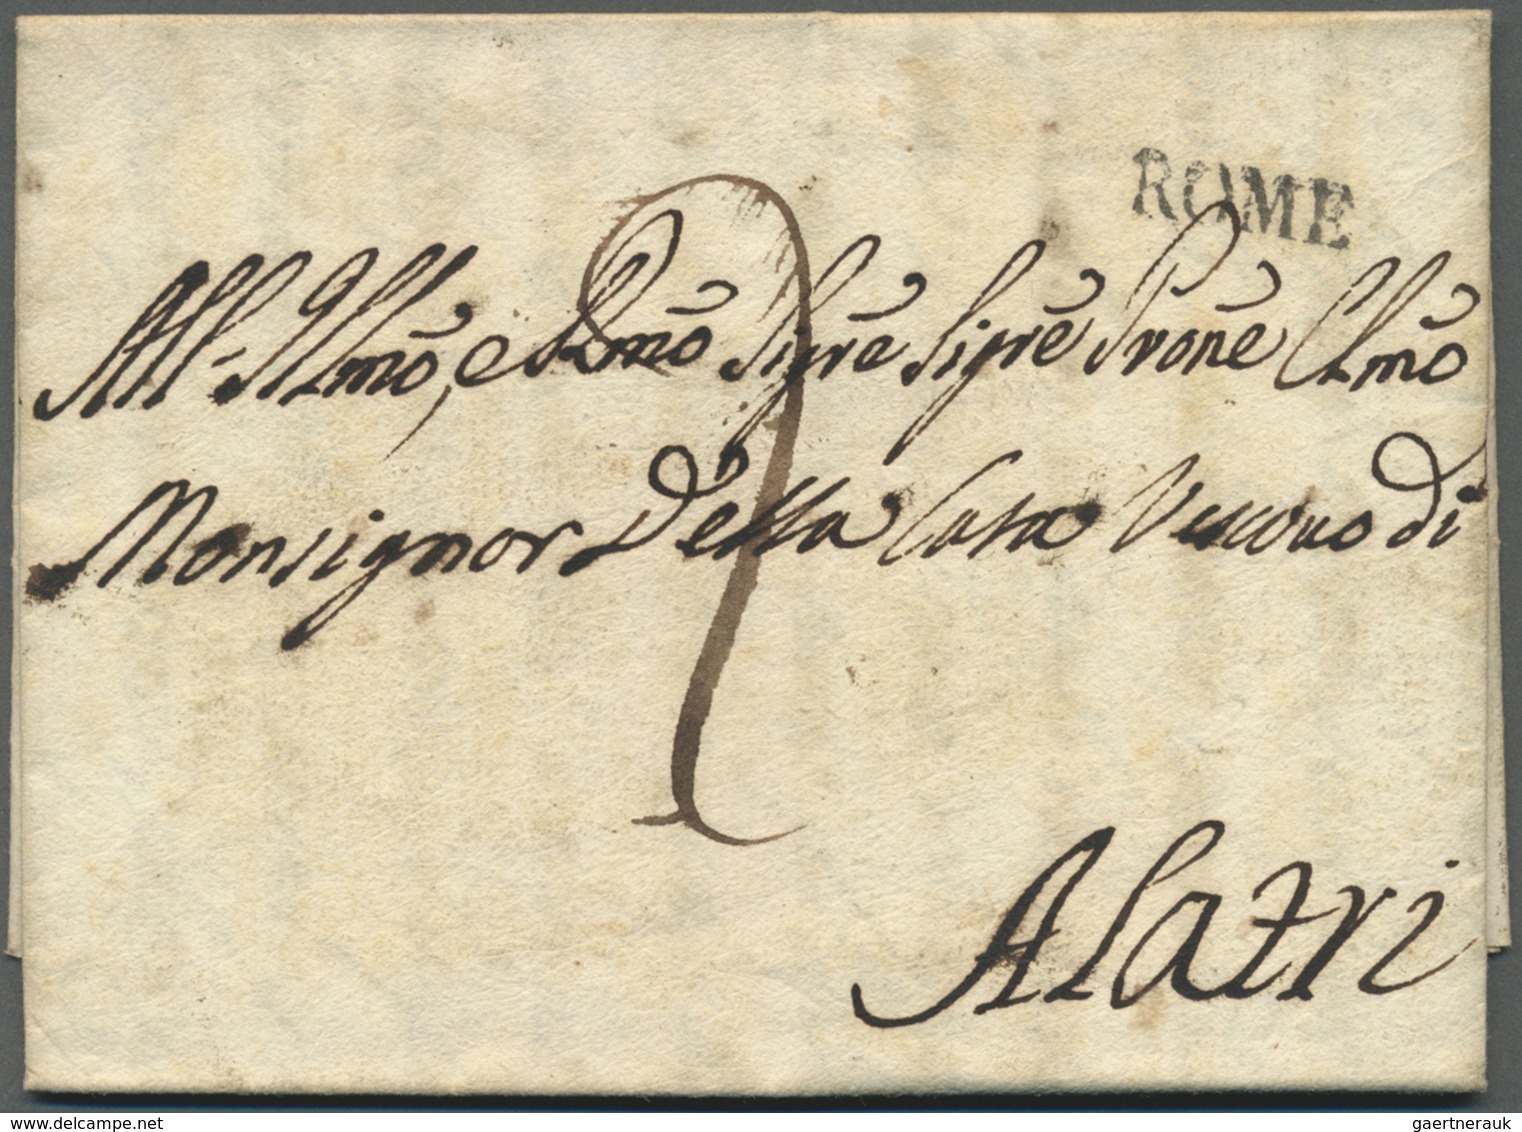 ROME
All' Illmõ, e Rmõ Sigrē Sigrē Pronē Clmõ
Monsignor Della Casa Vescovo di
2
Alatri
delcampe.net
gaertnerauk